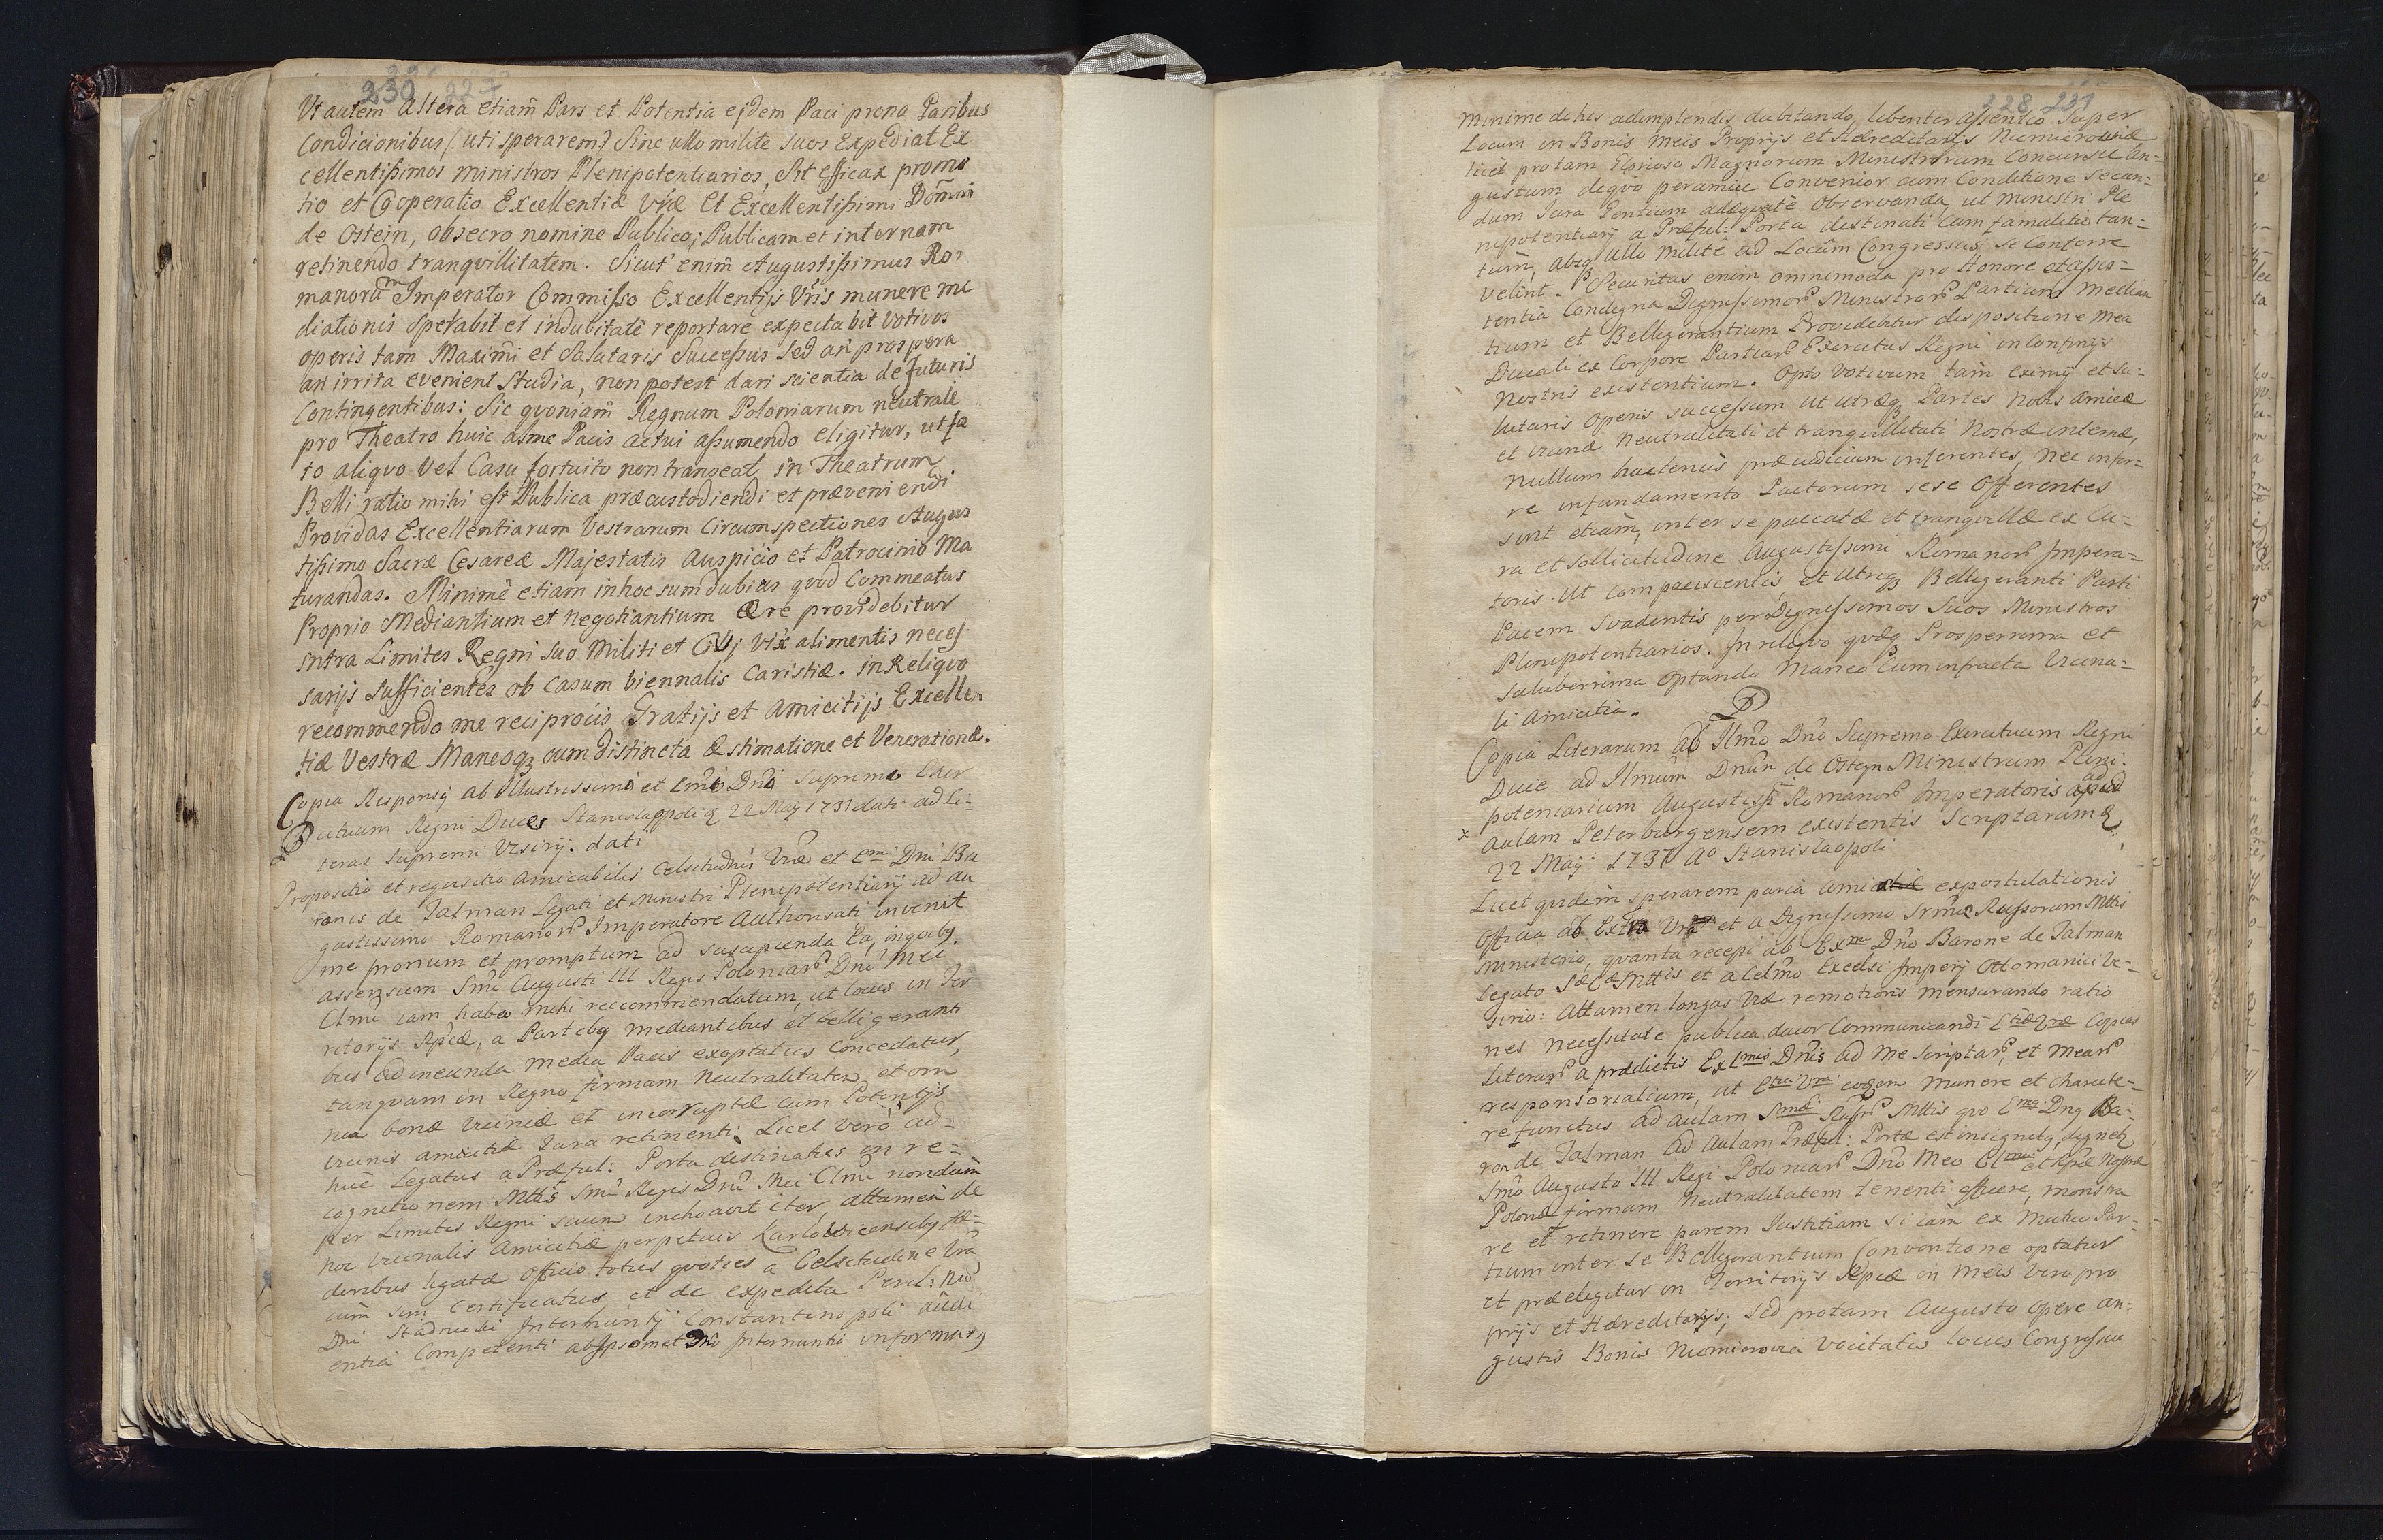 230
Ut autem Altera etiam̃ Pars et Potentia ejdem Paci prona Paribus
Condicionibus /: uti sperarem :/ Sine ullo milite suos Expediat Ex
cellentissimos ministros Plenipotentiarios, Sit efficax promo
tio et Cooperatio Excellentiæ Vr̃æ Et Excellentissimi Dom̃ni
de Ostein, obsecro nomine Publico; Publicam et internam
retinendo tranqvillitatem. Sicut enim̃ Augustissimus Ro:
manorũ Imperator Commisso Excellentijs Vr̃is munere me
diationis Sperabit et indubitatè reportare expectabit votivos
operis tam Maxim̃i et Salutaris Successus Sed an prospera
an irrita evenient Studia, non potest dari scientia de futuris
Contingentibus: Sic qvoniam̃ Regnum Poloniarum neutrale
pro Theatro huic almæ Pacis actui assumendo eligitur, ut fa
to aliqvo Vel Casu fortuito non transeat in Theatrum
Belli ratio mihi est Publica præcustodiendi et præveniendi
Providas Excellentiarum Vestrarum Circumspectiones Augus
tissimo Sacræ Cesareæ Majestatis Auspicio et Patrocinio Ma
turandas. Minimè etiam in hoc sum dubius qvod Commeatus
Proprio Mediantium et Negotiantium Ære providebitur
intra Limites Regni suo Militi et Civi vix alimentis neces
sarijs Sufficientes ob Casum biennalis Caristiæ. in Reliqvo
recommendo me reciprocis Gratijs et Amicitijs Excellen
tiæ Vestræ Maneoqꝫ cum distincta Æstimatione et Veneratione.
Copia Responsij ab Illustrissimo et Em̃o Dn̄o Supremo Exer
cituum Regni Duce Stanislaopoli 22 Maÿ 1737 dati ad li-
teras Supremi Vesirÿ. dati
Propositio et reqvisitio amicabilis Celsitudn̄is Vræ et Em̃i Dn̄i Ba
ronis de Talman Legati et Ministri Plenipotentiarÿ ad au
gustissimo Romanorũ Imperatore Authorisati invenit
me pronum et promptum ad suscipienda Ea, in qvibꝫ
assensum Sm̃i Augusti III Regis Poloniarũ Dn̄i Mei
Clmi iam habeo mihi reccommendatum, ut locus in Ter
ritorijs Rpcæ, a Partibꝫ mediantibus et belligeranti
bus ad ineunda media Pacis exoptatius Concedatur,
tanqvam in Regno firmam Neutralitatem, et om
nia bonæ vicinæ et incorruptæ cum Potentijs
vicinis amicitiæ Jura retinenti. Licet verò ad-
huc Legatus a Præful: Porta destinatus in re-
cognitionem Mttis Sm̃i Regis Dn̄i Mei Clmi nondum̃
per Limites Regni suum inchoavit iter, attamen de
hoc vicinalis Amicitiæ perpetuis Karlowicensibꝫ fæ-
deribus ligatæ officio toties qvoties a Celsitudine Vr̃a
cum sim Certificatus et de expedita
Dn̄i Stadnicki Internuntÿ Constantinopoli audi
entia Competenti ab ipsomet Dn̄o Internuntio informatꝰ
228 231
minime de his adimplendis dubitando, libenter assentio Super
Locum in Bonis meis Proprijs et Hæreditarijs Niemirowiæ
licet pro tam Glorioso Magnorum Ministrorum Concursu an-
gustum deqvo peramice Convenior cum Conditione secun-
dum Jura Gentium adæqvatè observanda ut ministri Ple
nipotentiarij a Præful: Porta destinati Cum famulitio tan-
tum̃, absqꝫ ullo milite ad Locum̃ Congressus se Conferre
velint. Securitas enim omnimoda pro Honore et assis-
tentia Condigna Dignissimorũ Ministrorũ Partium Median
tium et Belligerantium Providebitur dispositione mea
Ducali ex Corpore Partiarũ Exercitus Regni in Confinijs
Nostris existentium. Opto votivum tam̃ eximij et sa-
lutaris operis successum ut utræqꝫ Partes Nobis amicæ
et vicinæ Neutralitati et tranqvillitati Nostræ internæ,
nullum hactenus præiudicium inferentes, nec infer-
re in fundamento Pactorum sese offerentes
sint etiam̃, inter se pacatæ et tranqvillæ ex Cu-
ra et sollicitudine Augustissimi Romanorũ Impera-
toris. Ut compaciscentis et Utriqꝫ Belligeranti Parti
Pacem Svadentis per Dignissimos Suos Ministros
Plenipotentiarios. In reliqvo qvæqꝫ Prosperrima et
saluberrima optando Maneo Cum infracta vicina-
li Amicitia.
Copia Literarum ab Illmo Dn̄o Supremo Exercituum Regni
Duce ad Illmũm Dnũm de Ostein Ministrum Pleni-
potentiarium Augustissi Romanorũ Imperatoris ad
Aulam Peterburgensem existentis Scriptarum
22 Maÿ 1737 Aº Stanislaopoli
Licet qvidem sperarem paria ami expostulationis
officia ab Extra Vra et a Dignissimo Srm̃æ Russorum Mttis
Ministerio, qvanta recepi ab Exm̃o Dn̄o Barone de Talman
Legato Sæ Cæ Mttis et a Celm̃o Excelsi Imperÿ Ottomanici Ve-
sirio: Attamen longas viæ remotioris mensurando ratio
nes necessitate publica ducor Communicandi Etiæ Vræ Copias
Literarũ a prædictis Exlmis Dn̄is ad me Scriptarũ, et mearũ
responsorialium, ut Etia Vra eodem munere et charecte-
re functus ad aulam Smæ Russorũ Mttis qvo Emꝰ Dnꝰ Ba-
ron de Talman ad Aulam Præful: Portæ est insignitꝰ, dignetꝰ
Sm̃o Augusto III Regi Poloniarũ Dn̄o Meo Clmo et Rpcæ Nostræ
Polonæ firmam Neutralitatem tenenti efficere, monstra
re et retinere parem Justitiam si iam ex Mutua Par-
tium inter se Belligerantium Conventione optatur
et præeligitur in Territorijs Rpcæ in meis Vero pro
prijs et Hæreditarijs; sed pro tam Augusto opere an-
gustis Bonis Niemirovia vocitatis locus Congressus